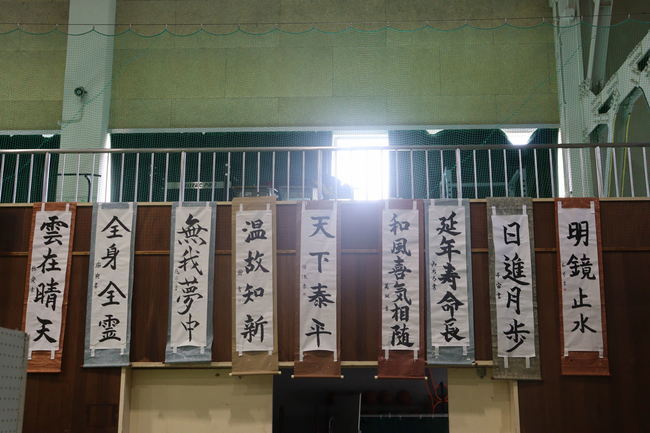 明鏡止水
日進月歩
延年寿命長
和風喜気相随
天下泰平
温故知新
無我夢中
全身全霊
雲在晴天